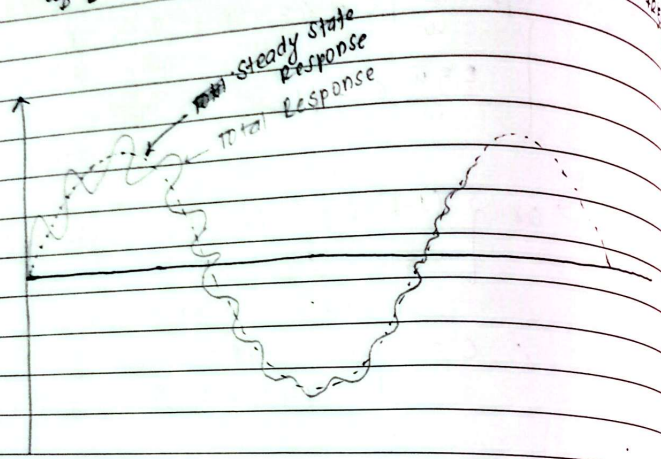 steady state
Response
Total Response